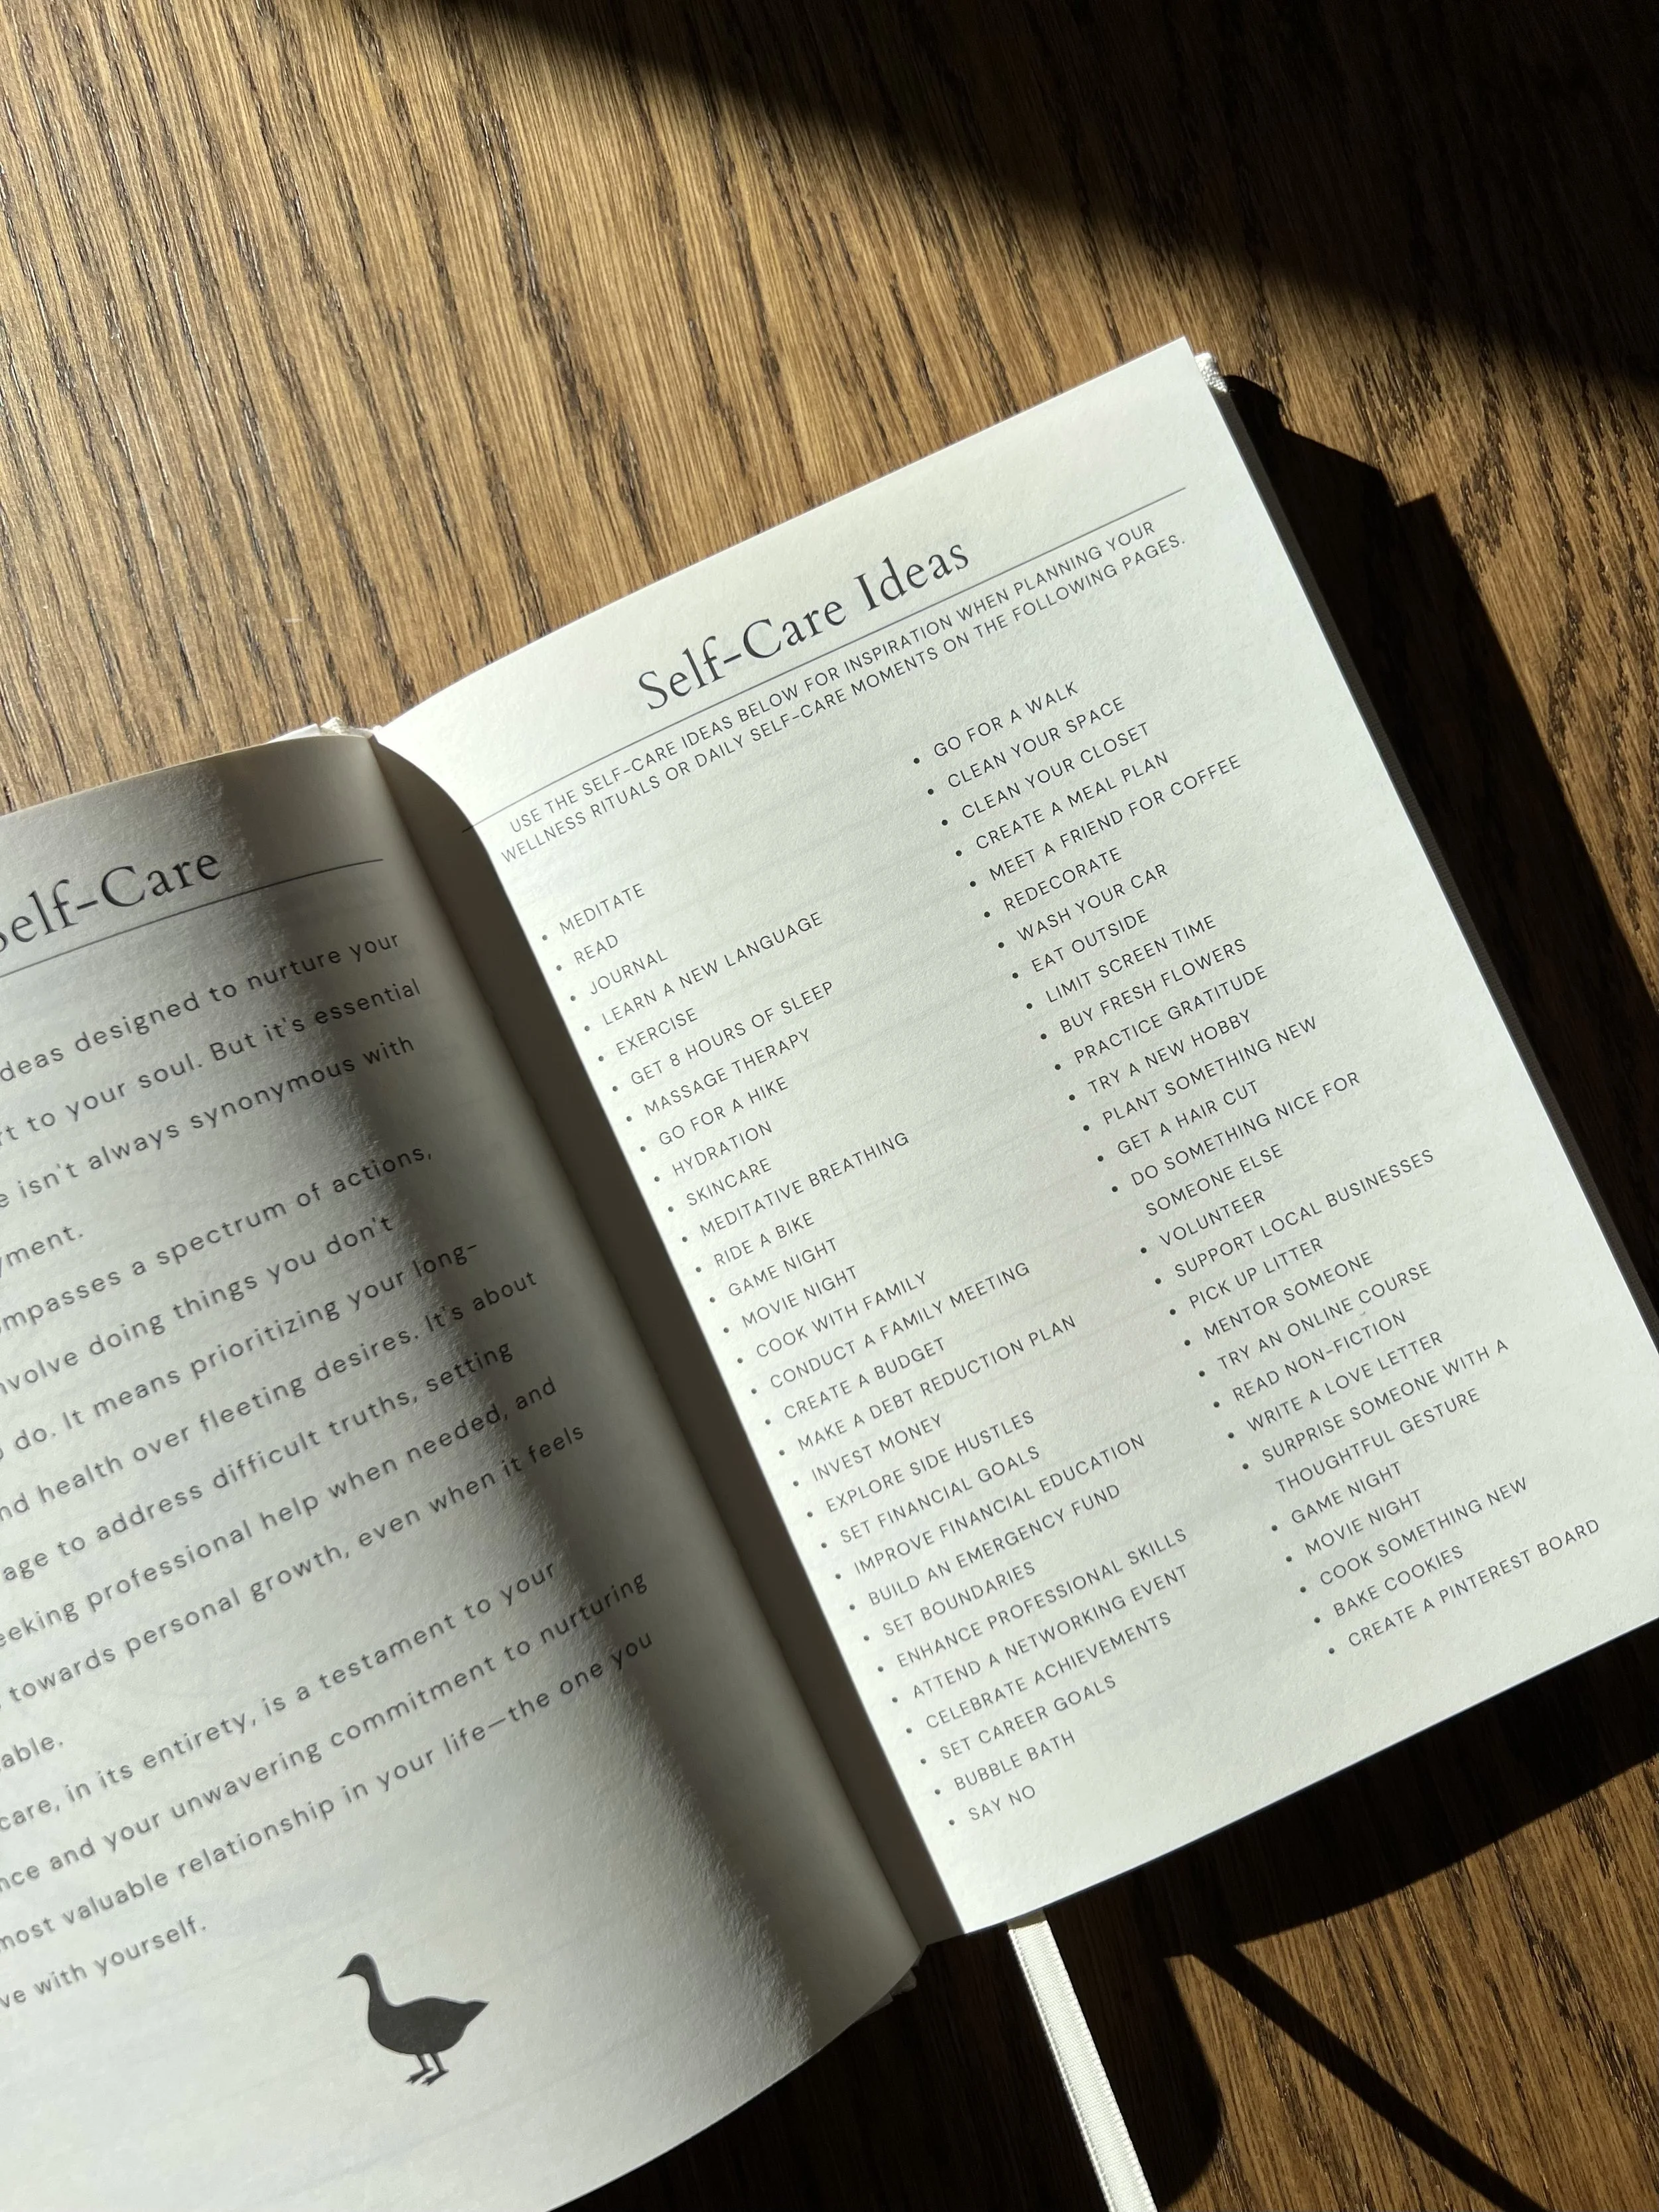 Self-Care
deas designed to nurture your
rt to your soul. But it's essential
e isn't always synonymous with
yment.
mpasses a spectrum of actions,
nvolve doing things you don't
o do. It means prioritizing your long-
nd health over fleeting desires. It's about
age to address difficult truths, setting
eeking professional help when needed, and
towards personal growth, even when it feels
able.
care, in its entirety, is a testament to your
nce and your unwavering commitment to nurturing
most valuable relationship in your life—the one you
ve with yourself.
Self-Care Ideas
USE THE SELF-CARE IDEAS BELOW FOR INSPIRATION WHEN PLANNING YOUR
WELLNESS RITUALS OR DAILY SELF-CARE MOMENTS ON THE FOLLOWING PAGES.
• MEDITATE
• READ
• JOURNAL
• LEARN A NEW LANGUAGE
• EXERCISE
• GET 8 HOURS OF SLEEP
• MASSAGE THERAPY
• GO FOR A HIKE
• HYDRATION
• SKINCARE
• MEDITATIVE BREATHING
• RIDE A BIKE
• GAME NIGHT
• MOVIE NIGHT
• COOK WITH FAMILY
• CONDUCT A FAMILY MEETING
• CREATE A BUDGET
• MAKE A DEBT REDUCTION PLAN
• INVEST MONEY
• EXPLORE SIDE HUSTLES
• SET FINANCIAL GOALS
• IMPROVE FINANCIAL EDUCATION
• BUILD AN EMERGENCY FUND
• SET BOUNDARIES
• ENHANCE PROFESSIONAL SKILLS
• ATTEND A NETWORKING EVENT
• CELEBRATE ACHIEVEMENTS
• SET CAREER GOALS
• BUBBLE BATH
• SAY NO
• GO FOR A WALK
• CLEAN YOUR SPACE
• CLEAN YOUR CLOSET
• CREATE A MEAL PLAN
• MEET A FRIEND FOR COFFEE
• REDECORATE
• WASH YOUR CAR
• EAT OUTSIDE
• LIMIT SCREEN TIME
• BUY FRESH FLOWERS
• PRACTICE GRATITUDE
• TRY A NEW HOBBY
• PLANT SOMETHING NEW
• GET A HAIR CUT
• DO SOMETHING NICE FOR
SOMEONE ELSE
• VOLUNTEER
• SUPPORT LOCAL BUSINESSES
• PICK UP LITTER
• MENTOR SOMEONE
• TRY AN ONLINE COURSE
• READ NON-FICTION
• WRITE A LOVE LETTER
• SURPRISE SOMEONE WITH A
THOUGHTFUL GESTURE
• GAME NIGHT
• MOVIE NIGHT
• COOK SOMETHING NEW
• BAKE COOKIES
• CREATE A PINTEREST BOARD